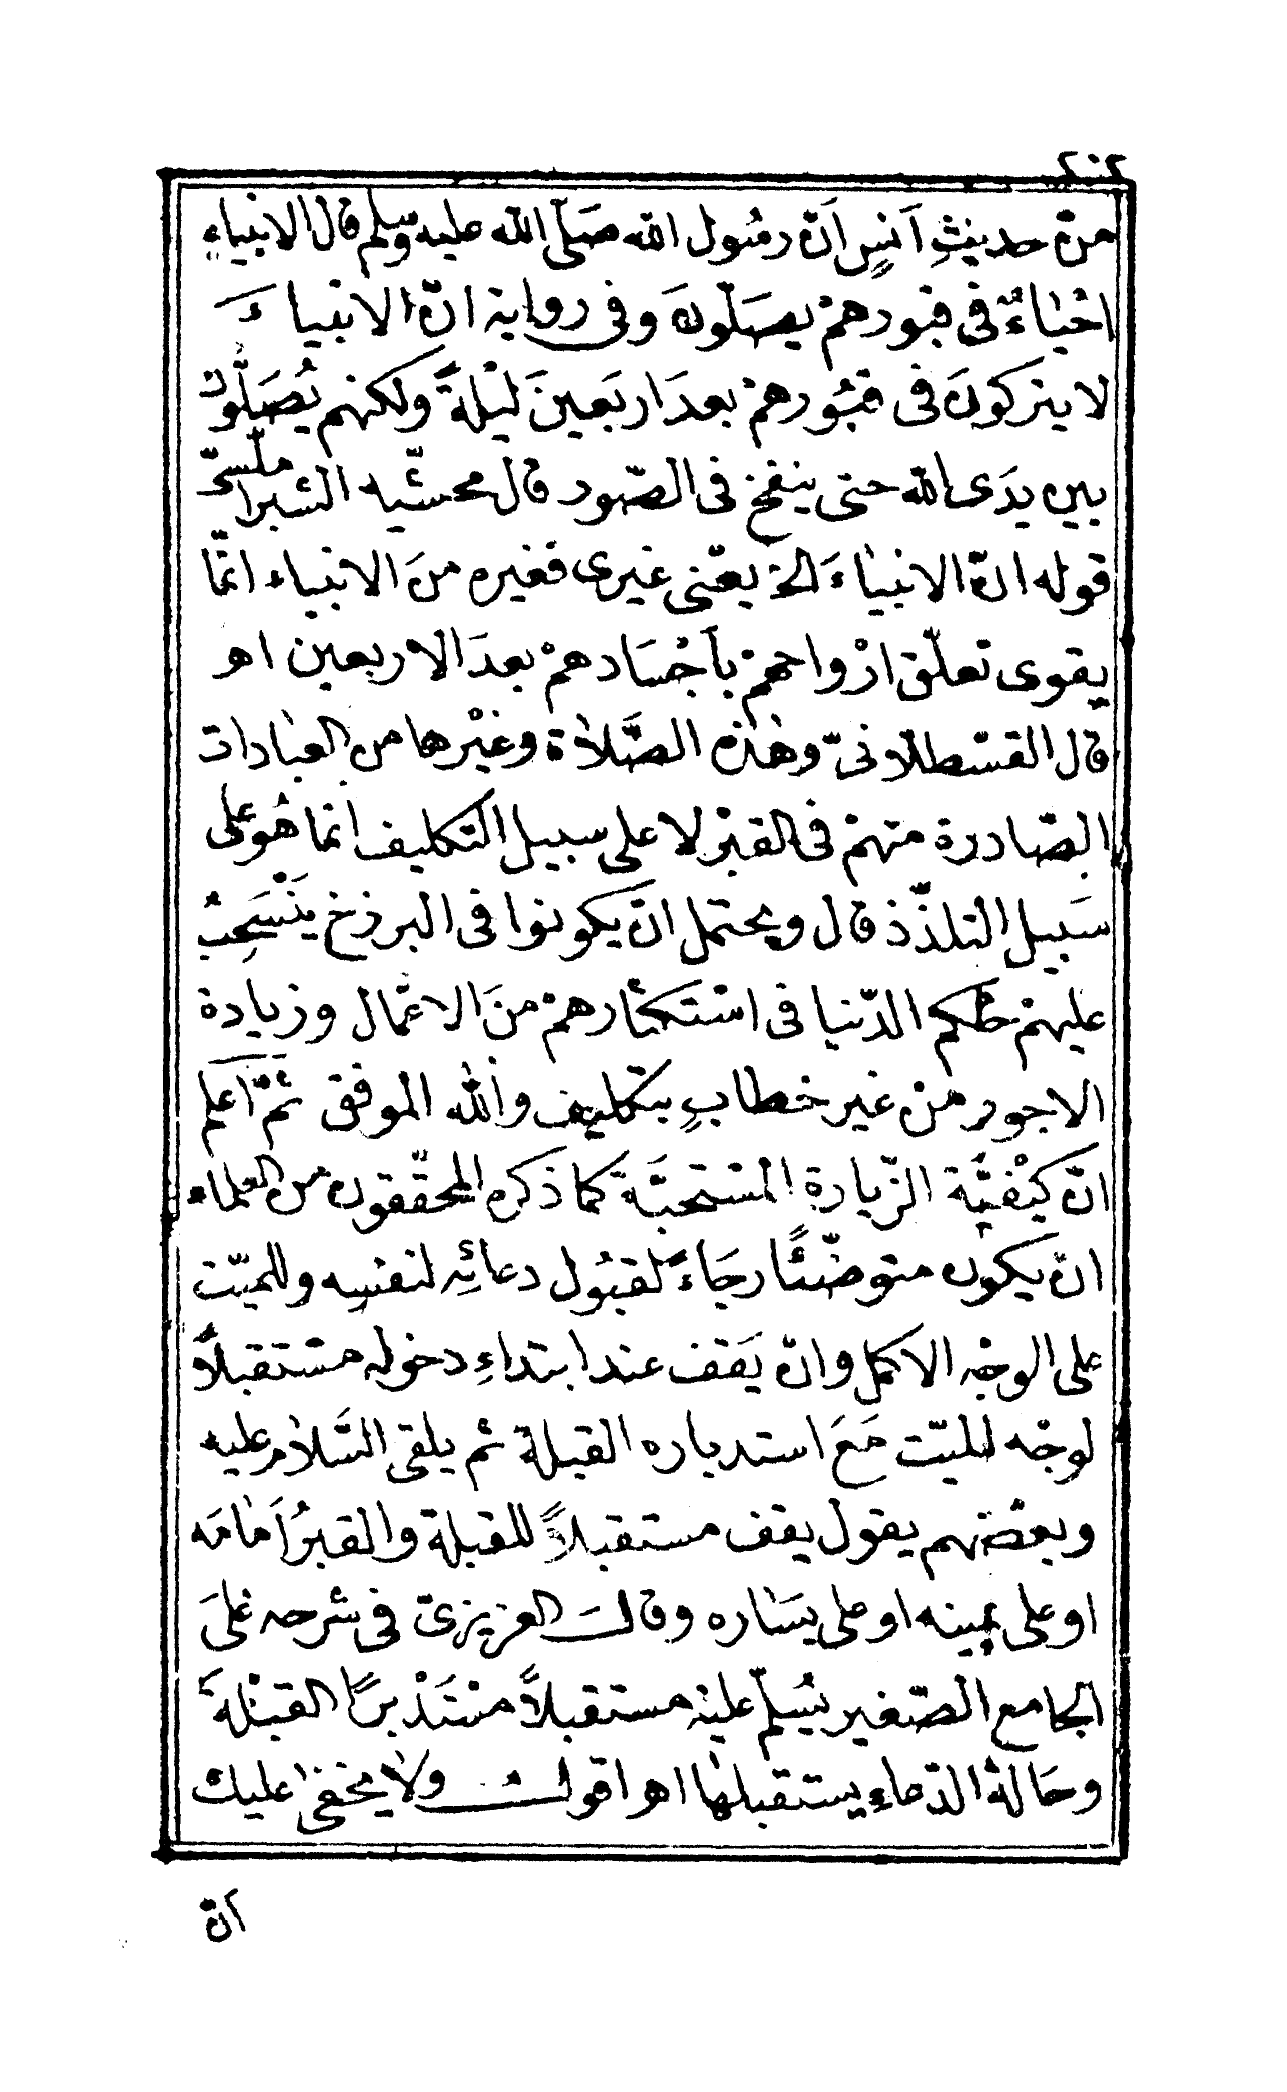 ٢٠٢
من حديثِ أَنسٍ اَنّ رسُول الله صَلّى الله عليه وسلم قال الانبياءِ
احْياءٌ فى قبورهمْ يصَلّونَ وفى رواية انّ الانبياءَ
لا يتركونَ فى قبُورهمْ بعدَ اربَعينَ ليْلةً ولكنهم يُصَلُّون
بين يدَى الله حتى ينفخ فى الصّور قال محشّيه الشبراملسىّ
قوله انّ الانبياءَ الخ يعْنى غيرى فغيره منَ الانبياء انمّا
يقوى تعلّق ارْواحهمْ بأجْسَادهمْ بعدَ الاربعين اهـ
قال القسْطلّانىّ وهٰذه الصَّلاة وغيْرها من العبادات
الصّادرة منهمْ فى القبْر لا على سبيل التكليف انما هُو على
سَبيل التلذّذ قال ويحتمل انّ يكونوا فى البرزخ ينْسَحِبُ
عليهمْ حكم الدّنيا فى اسْتكثارهمْ منَ الاعْمال وزيادة
الاجور منْ غير خطابٍ بتكليف والله الموفق ثمَّ اَعلم
انّ كيْفيَّة الزّيارة المسْتحبَّة كما ذكره المحقّقون من العلماء
انّ يكون متوضّئًا رجَاءً لقبُول دعائِه لنفسِه وللميّت
على الوجْه الاكمل وانّ يَقف عند ابتداءِ دخوله مسْتقبلاً
لوجْه الميّت مَعَ استدباره القبلة ثم يلقى السَّلام عليه
وبعْضهم يقول يقف مستقبلاً للقبلة والقبرُ اَمامَه
او على يمينه او على يسَاره وقالَ العزيزىّ فى شرحه علىَ
الجامع الصّغير يُسَلّم عليْه مستقبلاً مسْتَدْبرًا القبْلةَ
وحَالةُ الدّعاءِ يستقبلهَا اهـ اقولُ ولا يخفى عليك
انّ